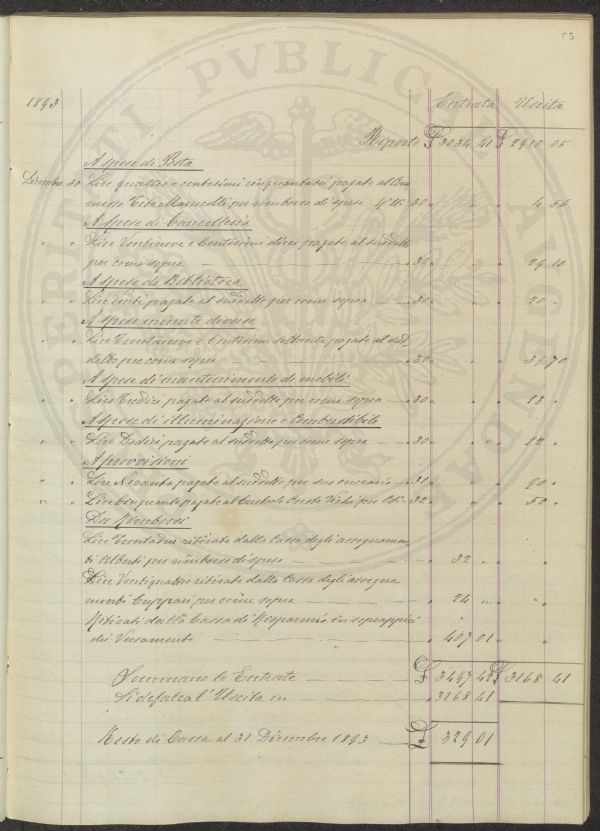 85
PERITI PVBLICAE AVGENDAE
1893
Entrata Uscita
Riporto £ 3034 41 £ 2910 05
A Spese di Posta
Dicembre 30 Lire quattro e centesimi cinquantasei pagate al Com
messo Tito Marucelli per rimborso di spese N° 30 " " 4 56
A Spese di Cancelleria
" " Lire Ventinove e Centesimi dieci pagate al suddetto
per come sopra — " 30 " " 29 10
A Spese di Biblioteca
" " Lire Venti pagate al suddetto per come sopra — " 30 " " 20 "
A Spese minute diverse
" " Lire Trentanove e Centesimi settanta pagate al sud
detto per come sopra — " 30 " " 39 70
A Spese di mantenimento di mobili
" " Lire Tredici pagate al suddetto per come sopra — " 30 " " 13 "
A Spese di illuminazione e Combustibile
" " Lire Dodici pagate al suddetto per come sopra — " 30 " " 12 "
A provvisioni
" " Lire Novanta pagate al suddetto per suo onorario — " 31 " " 90 "
" " Lire cinquanta pagate al Custode Oreste per Id. " 32 " " 50 "
Da Rimborsi
Lire Trentadue ritirate dalla Cassa degli assegnamen
ti Alberti per rimborso di spese — " 32 " " "
Lire Ventiquattro ritirate dalla Cassa degli assegna
menti Cuppari per come sopra — " 24 " " "
Ritirati dalla Cassa di Risparmio in soprappiù
dei Versamenti — " 407 01 " "
Sommano le Entrate — £ 3497 42 £ 3168 41
Si defalca l'Uscita in — " 3168 41
Resto di Cassa al 31 Dicembre 1893 — £ 329 01